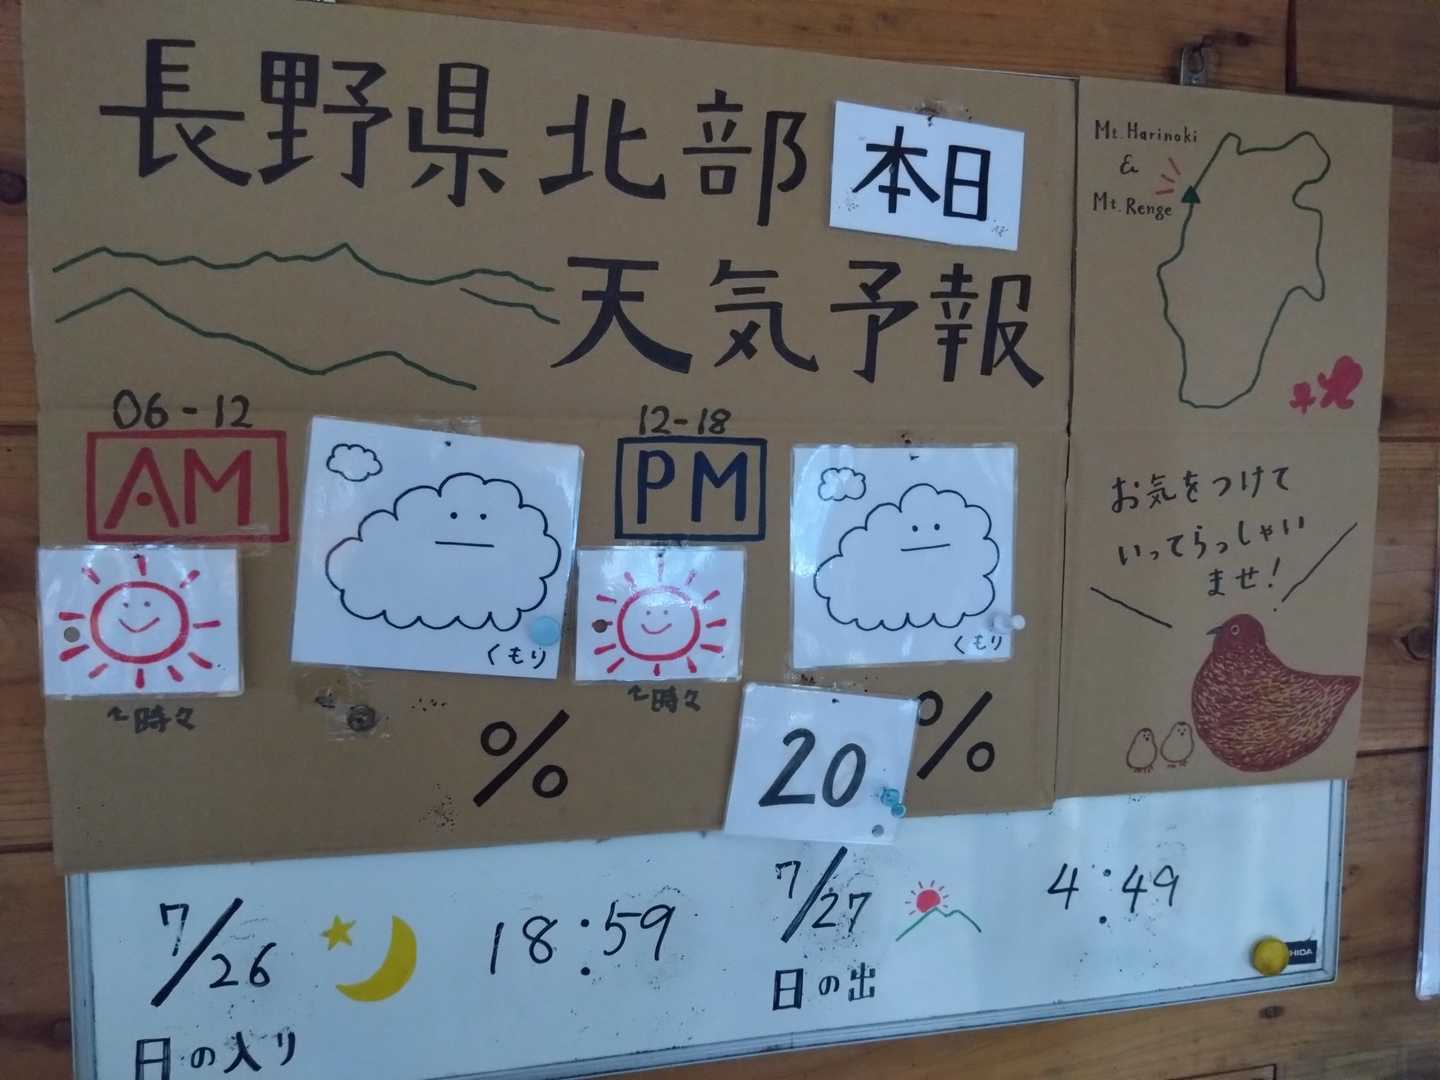 長野県北部 本日
天気予報
Mt. Harinoki
&
Mt. Renge
06-12
AM
くもり
時々
%
12-18
PM
くもり
時々
20 %
お気をつけて
いってらっしゃい
ませ!
7/26 18:59
日の入り
7/27 4:49
日の出